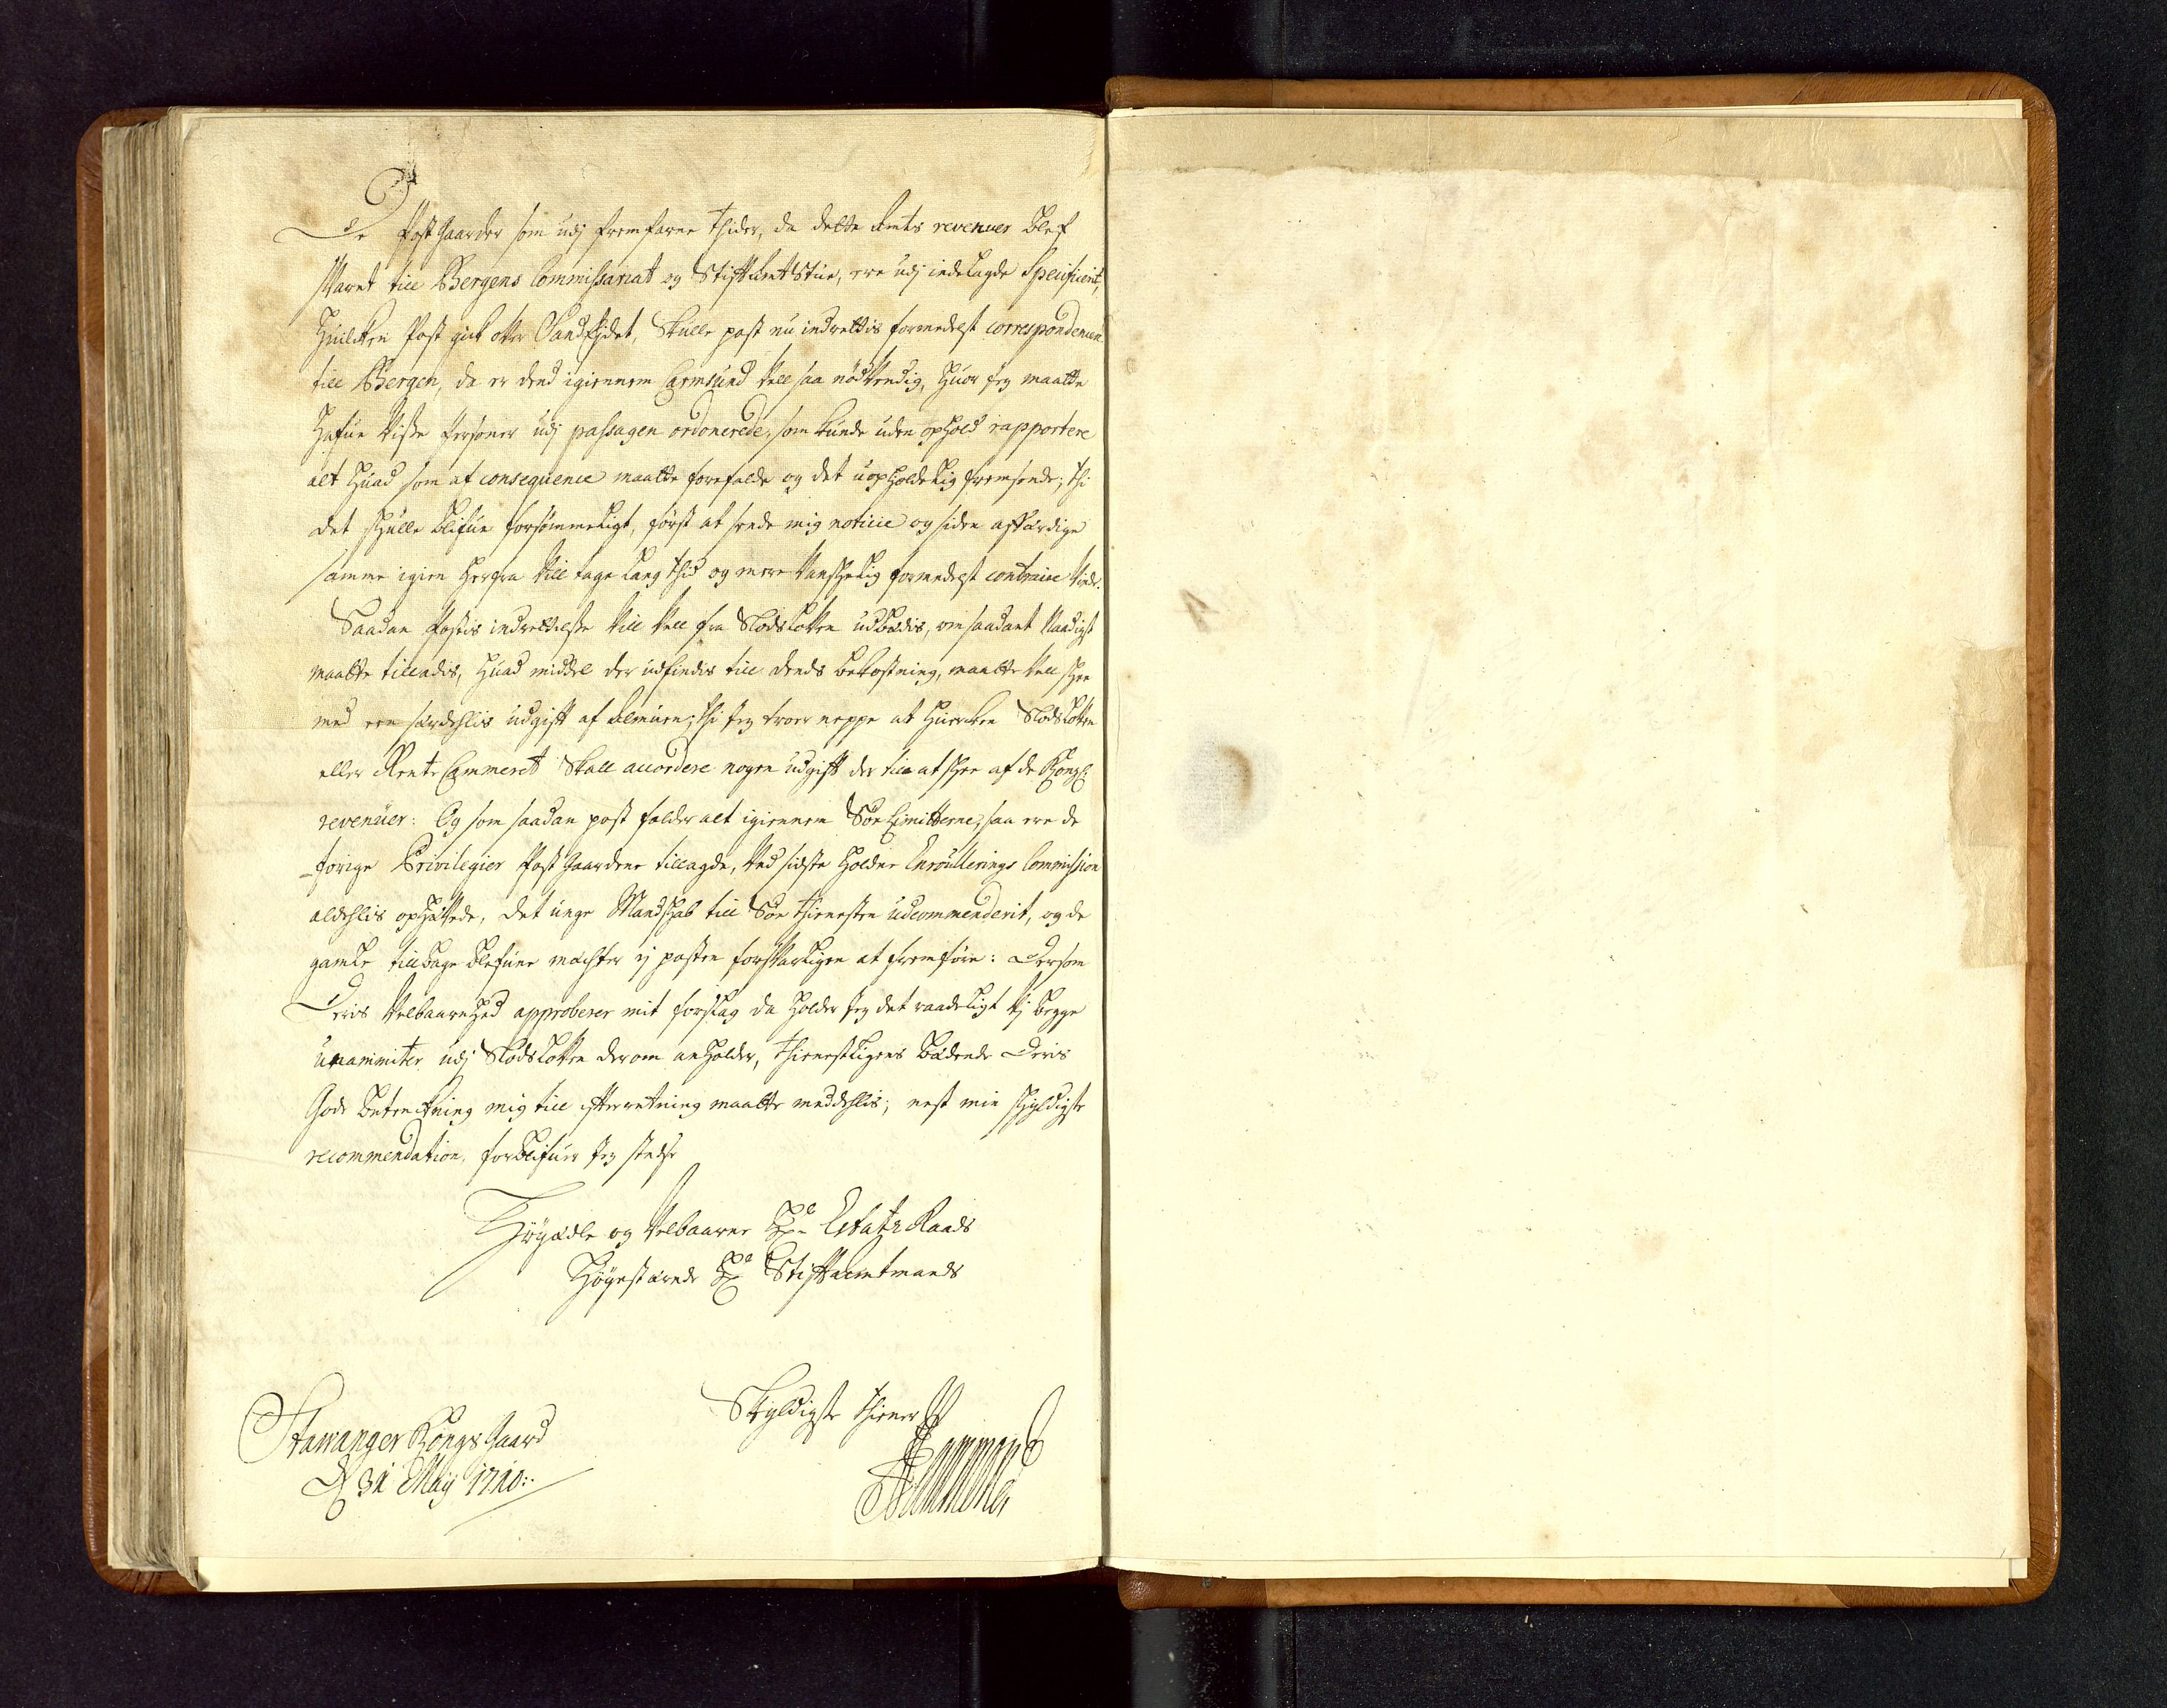 De Post Gaarder som udj fremfarne thider, da dette Amts revenuer blef
svaret till Bergens Commissariat og StiftAmtstue, ere udj indelagde Specificerit,
Huilchen Post gik ofver Sandfhidet, Skulle post nu indrettis formedelst correspondencen
till Bergen, da er dend igiennem Carmsund vell saa nødvendig, Huor jeg maatte
Hafue visse Personer udj passagen ordonerede, som kunde uden ophold rapportere
alt Huad som af consequence maatte forefalde og det uopholdelig fremsende; thi
det skulle blifue forsømmeligt, først at sende mig noticie og siden affærdige
samme igien herfra vill tage lang thid og mere vanskelig formedelst contraire vinde.
Saadan Postis indrettelse vill vell fra Slodsloven udbædis, om saadant Naadigst
maatte tilladis, Huad middel der udfindis till dends bekostning, maatte vell skee
med een særdehlis udgift af Almuen; thi jeg troer neppe at Huercken Slodsloven
eller RenteCammeret Skall accordere nogen udgift der till at skee af de Kongl:
revenuer: Og som saadan post falder alt igiennem Søe Limitterne, saa ere de
forige Privilegier Post Gaardene tillagde, ved sidste holdne Enroullerings Commission
aldehlis ophævede, det unge Mandskab till Søe thienesten udcommenderit, og de
gamle tilbage blefune mechter ej posten forsvarligen at fremføre: Dersom
Deris Velbaarnhed approberer mit forslag da holder jeg det raadeligt vj begge
unanimiter udj Slodsloven derom anholder, thienstligens bædende Deris
Gode betenkning mig till efterretning maatte meddehlis; nest min skyldigste
recommendation, forblifuer jeg stedse
Høyædle og Velbaarne Hr: Estatz Raads
Høystærede Hr: Stiftamtmands
Skyldigste thiener
Stavanger Kongs Gaard
D 31 Maij 1710: